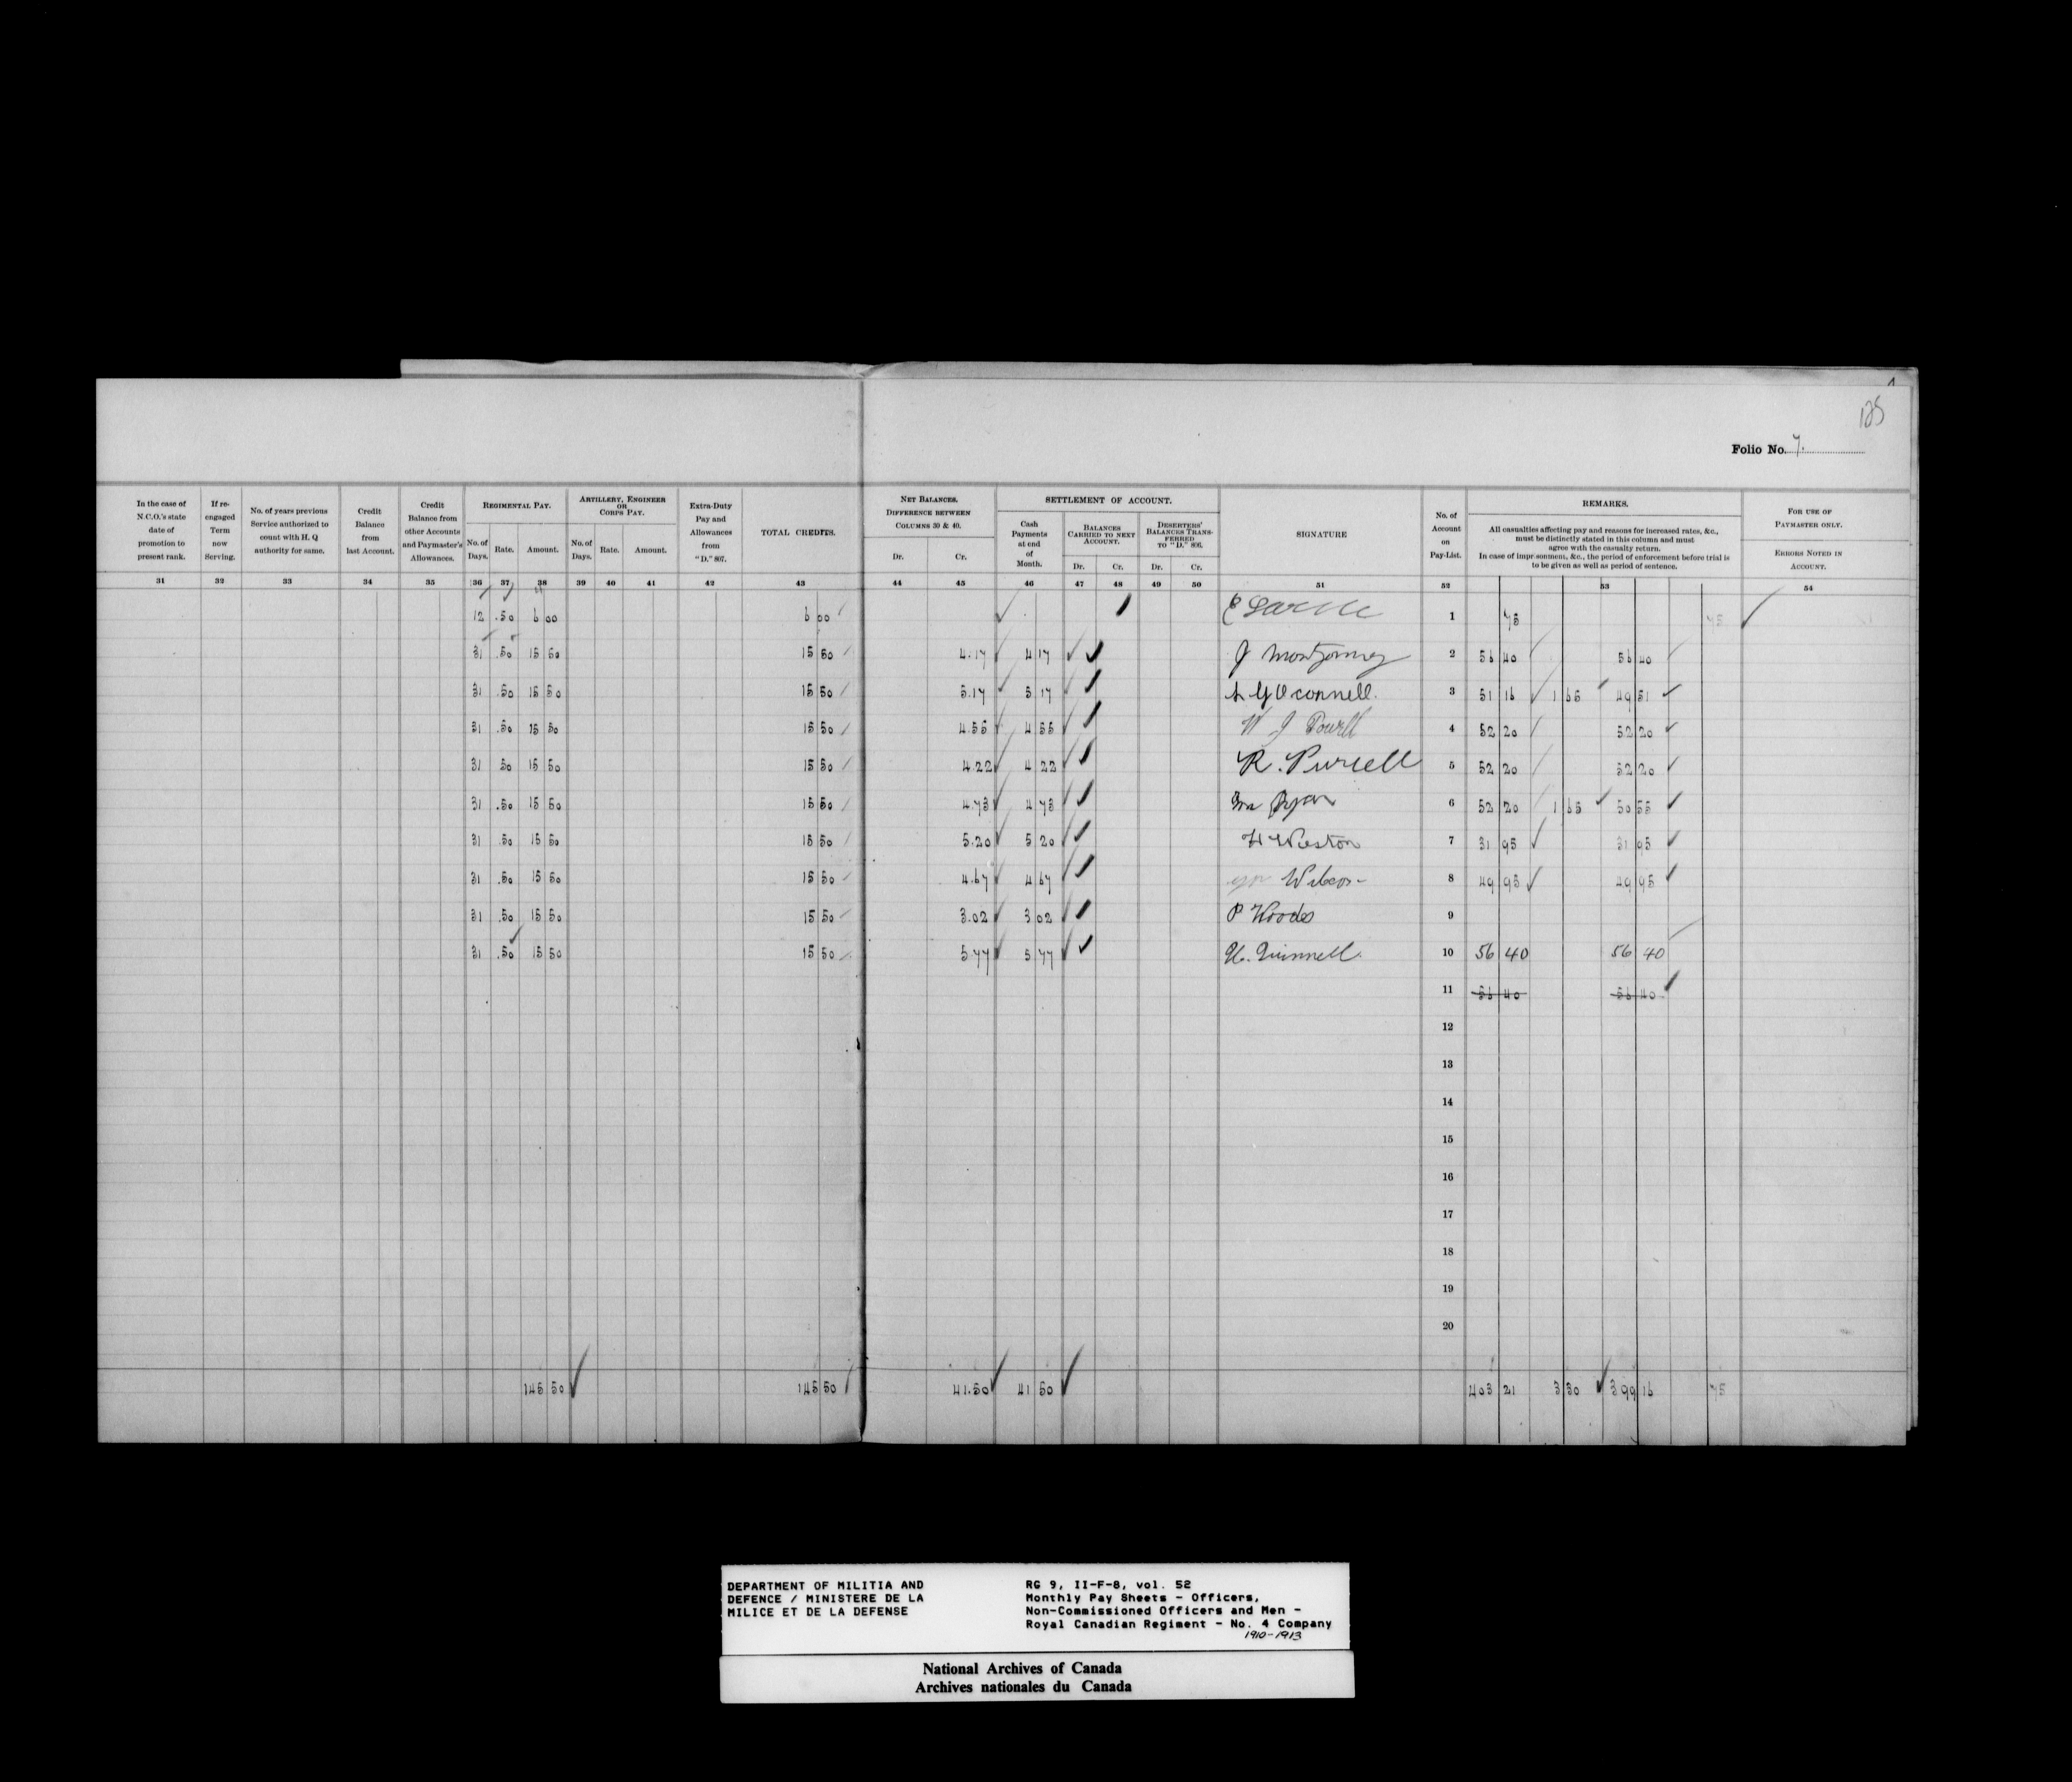 125
Folio No. 7.
In the case of N.C.O.'s state date of promotion to present rank.
If re-engaged Term now Serving.
No. of years previous Service authorized to count with H. Q authority for same.
Credit Balance from last Account.
Credit Balance from other Accounts and Paymaster's Allowances.
REGIMENTAL PAY.
No. of Days. Rate. Amount.
ARTILLERY, ENGINEER OR CORPS PAY.
No. of Days. Rate. Amount.
Extra-Duty Pay and Allowances from "D." 807.
TOTAL CREDITS.
NET BALANCES. DIFFERENCE BETWEEN COLUMNS 30 & 40.
Dr. Cr.
SETTLEMENT OF ACCOUNT.
Cash Payments at end of Month.
BALANCES CARRIED TO NEXT ACCOUNT.
Dr. Cr.
DESERTERS' BALANCES TRANSFERRED TO "D." 806.
Dr. Cr.
SIGNATURE
No. of Account on Pay-List.
REMARKS.
All casualties affecting pay and reasons for increased rates, &c., must be distinctly stated in this column and must agree with the casualty return.
In case of imprisonment, &c., the period of enforcement before trial is to be given as well as period of sentence.
FOR USE OF PAYMASTER ONLY.
ERRORS NOTED IN ACCOUNT.
31 32 33 34 35 36 37 38 39 40 41 42 43 44 45 46 47 48 49 50 51 52 53 54
12 .50 6 00 6 00 1 75 75
31 .50 15 50 15 50 4.17 4 17 J Montgomery 2 56 40 56 40
31 .50 15 50 15 50 5.17 5 17 O'Connell. 3 51 16 1 65 49 51
31 .50 15 50 15 50 4.55 4 55 W J Powell 4 52 20 52 20
31 50 15 50 15 50 4.22 4 22 R. Purcell 5 52 20 52 20
31 .50 15 50 15 50 4.73 4 73 Wm Ryan 6 52 20 1 65 50 55
31 .50 15 50 15 50 5.20 5 20 H Weston 7 31 95 31 95
31 .50 15 50 15 50 4.67 4 67 Wilcox 8 49 95 49 95
31 .50 15 50 15 50 3.02 3 02 P Woods 9
31 .50 15 50 15 50 5.77 5 77 10 56 40 56 40
11 56 40 56 40
12
13
14
15
16
17
18
19
20
145 50 145 50 41.50 41 50 403 21 3 30 399 16 75
DEPARTMENT OF MILITIA AND
DEFENCE / MINISTERE DE LA
MILICE ET DE LA DEFENSE
RG 9, II-F-8, vol. 52
Monthly Pay Sheets - Officers,
Non-Commissioned Officers and Men -
Royal Canadian Regiment - No. 4 Company
1910-1913
National Archives of Canada
Archives nationales du Canada